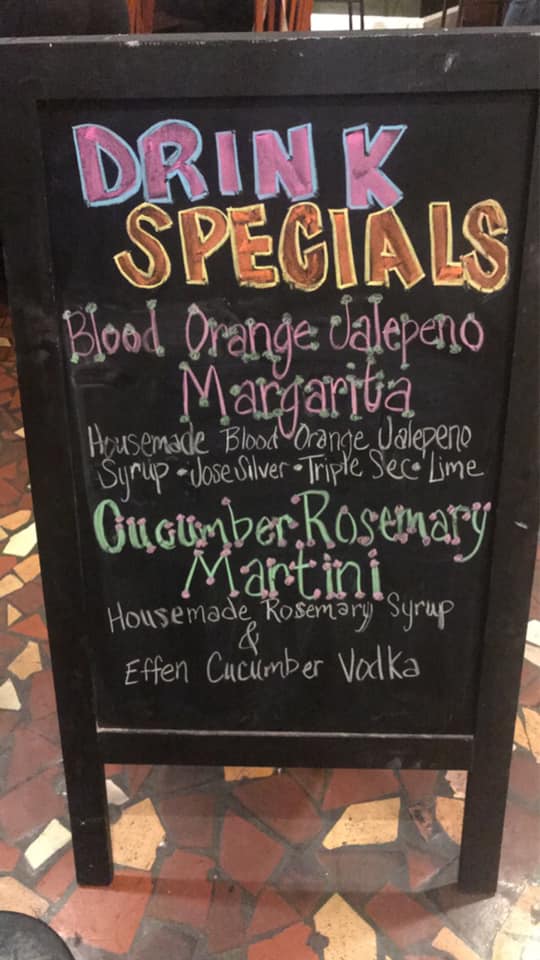 DRINK
SPECIALS
Blood Orange Jalepeno
Margarita
Housemade Blood Orange Jalepeno
Syrup • Jose Silver • Triple Sec • Lime
Cucumber Rosemary
Martini
Housemade Rosemary Syrup
&
Effen Cucumber Vodka